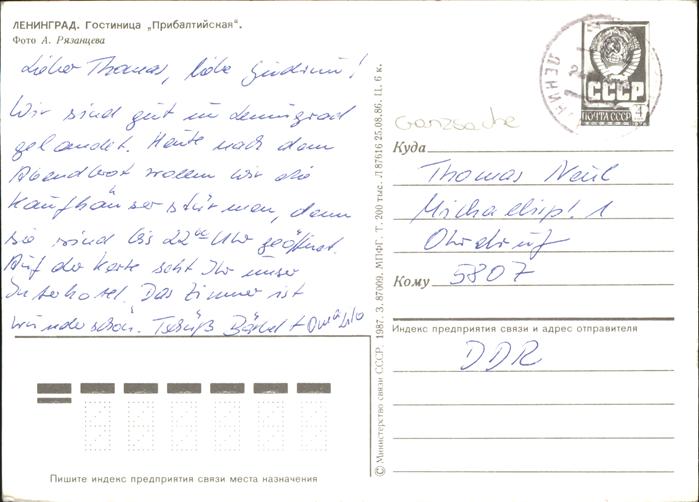 ЛЕНИНГРАД. Гостиница „Прибалтийская“.
Фото А. Рязанцева
Lieber Thomas, liebe
Wir sind gut in Leningrad
gelandet. Heute nach dem
Abendbrot wollen wir die
Kaufhäuser stürmen, denn
sie sind bis 22⁰⁰ Uhr geöffnet.
Auf der Karte seht Ihr unser
Interhotel. Das Zimmer ist
wunderschön. Tschüß Bärbel +
Пишите индекс предприятия связи места назначения
© Министерство связи СССР. 1987. З. 87009. МПФГ. Т. 200 тыс. Л 87616 25.08.86. II. 6 к.
СССР
ПОЧТА СССР 4
ЛЕНИН
Ganzsache
Куда
Thomas
Michaelispl. 1
Ohrdruf
Кому 5807
Индекс предприятия связи и адрес отправителя
DDR